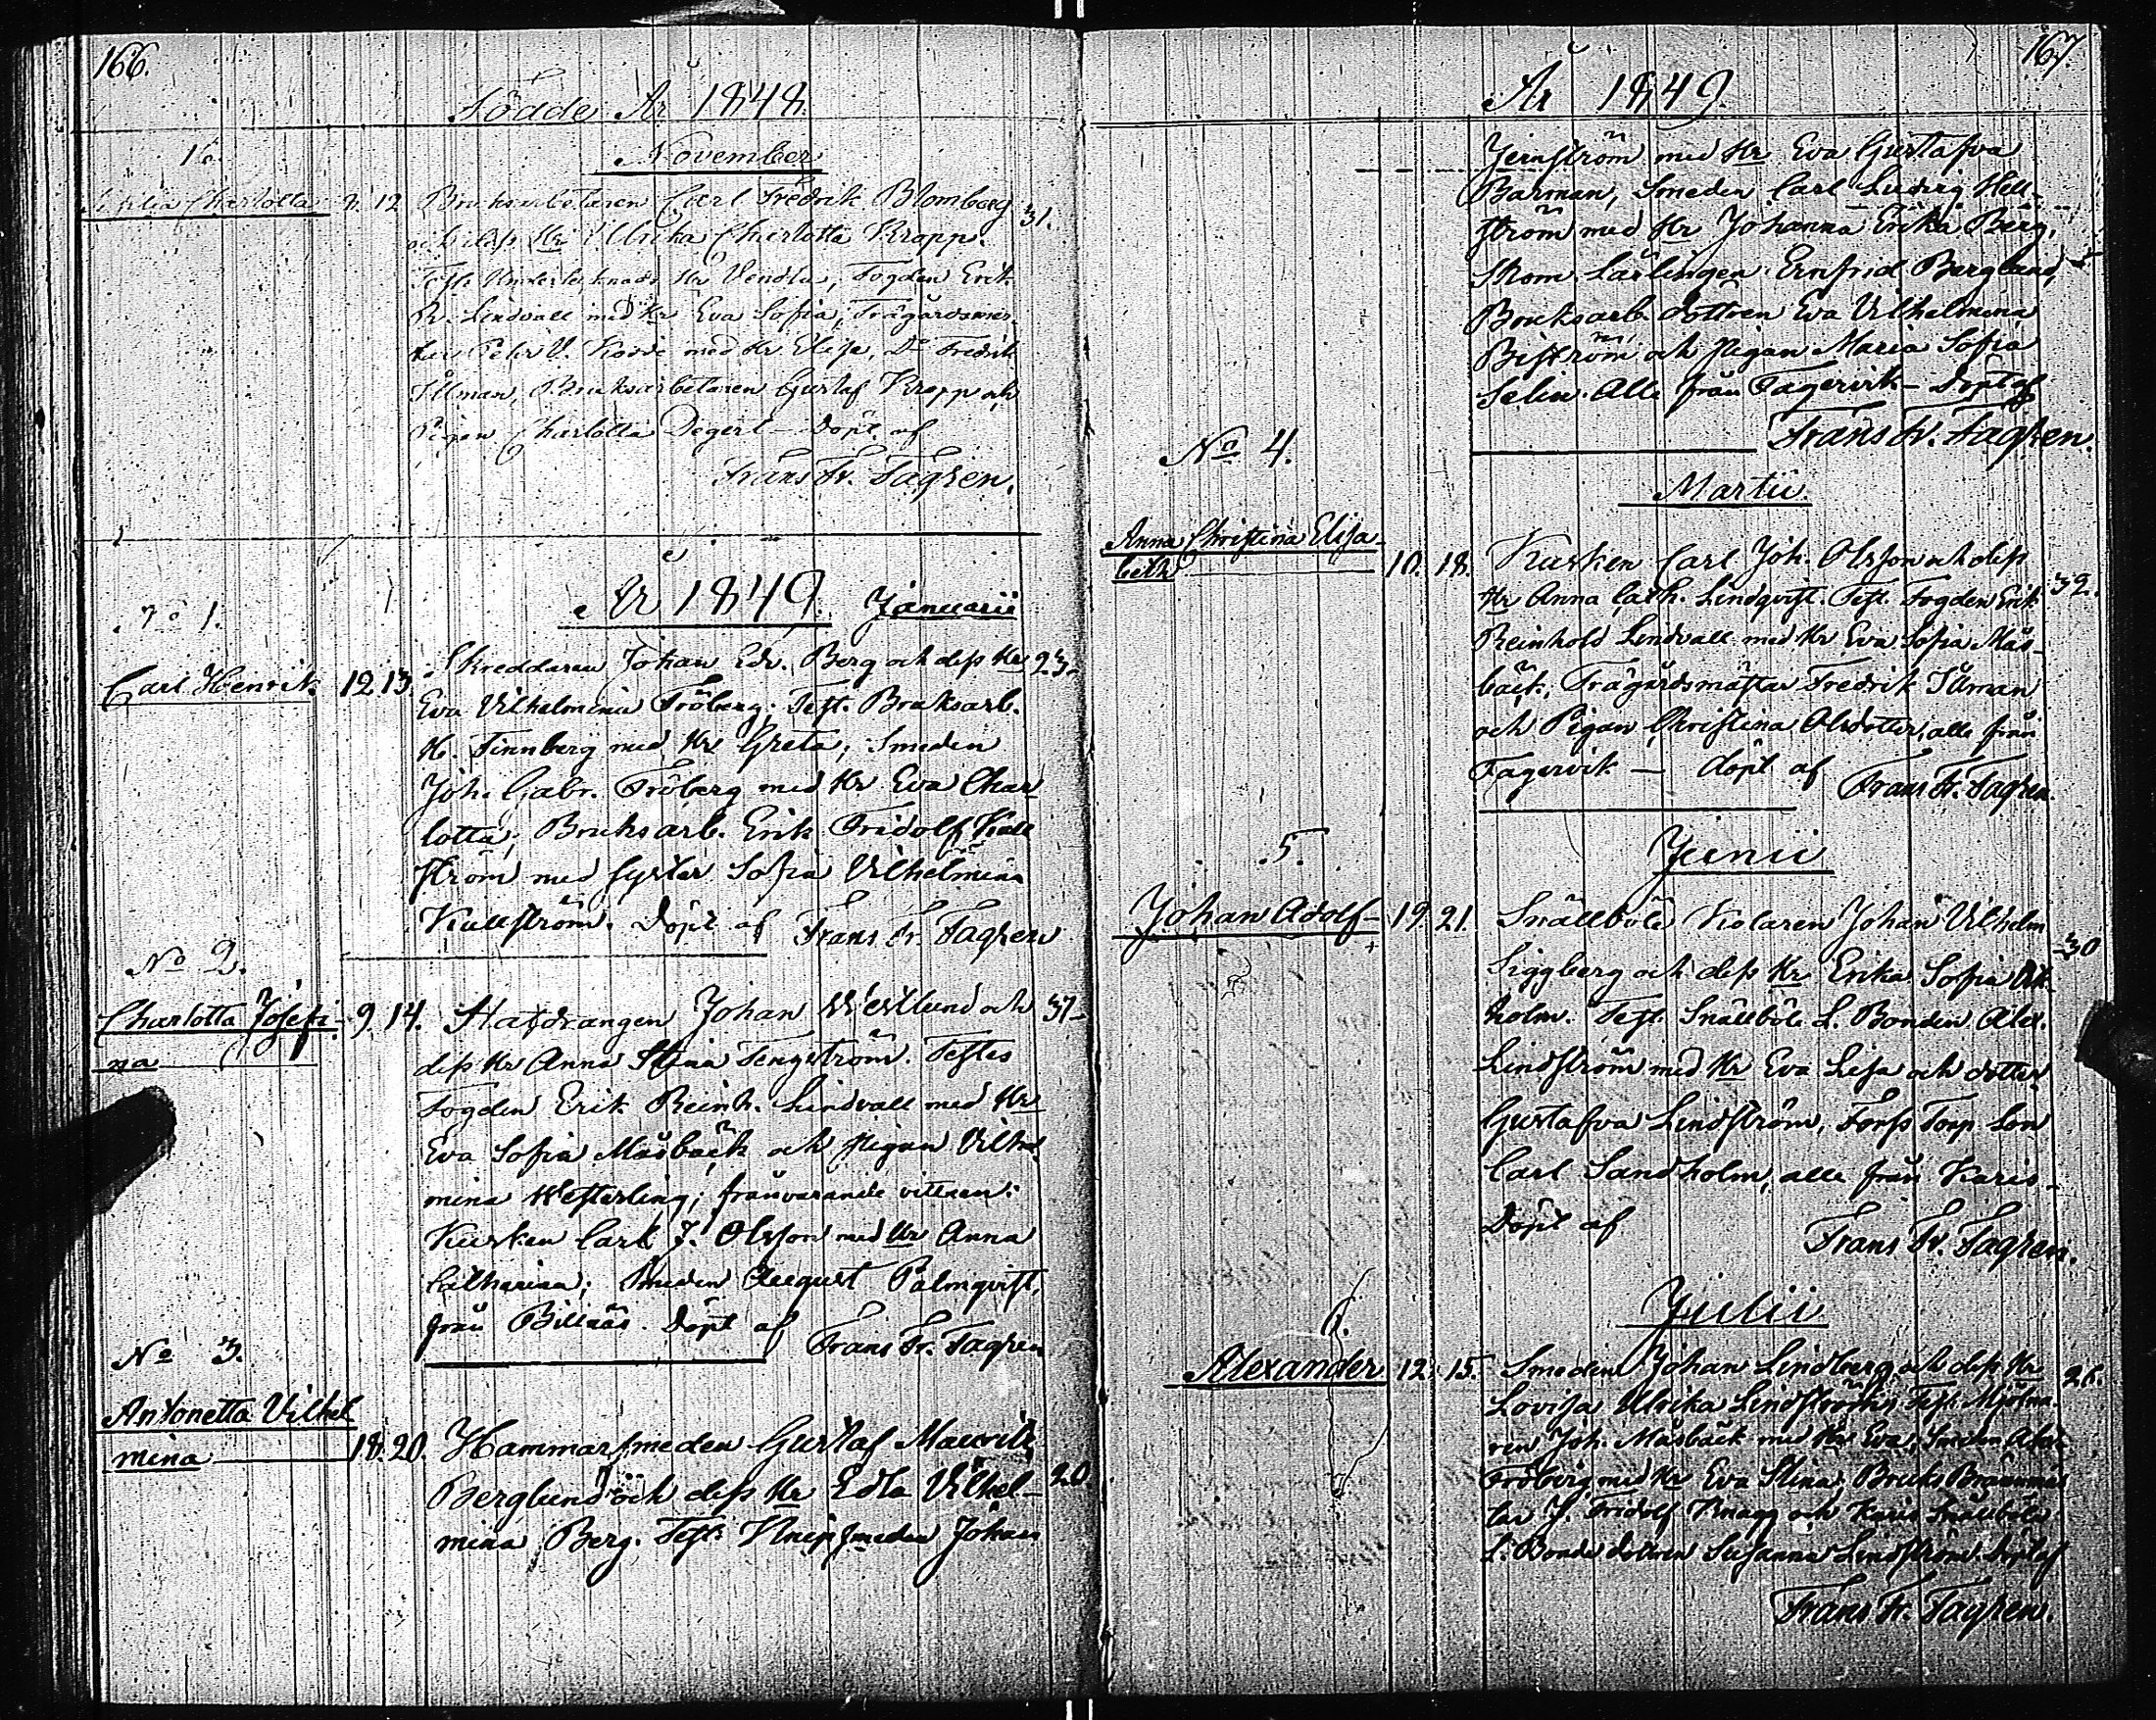 166.
Födde År 1848.
16.
November
Charlotta 9. 12 Bruksarbetaren Carl Fredrik Blomberg 31.
och dess Hr Ulrika Charlotta Kropp.
Test. Hr Vendla, Fogden Erik
R. Lindvall med Hr Eva Sofia, Trägårdsmäs-
ter Petr V. med Hr Elisa, Do Fredrik
Illman, Bruksarbetaren Gustaf Kropp och
Pigan Charlotta Degert - Döpt af
Frans Fr. Fagren.
År 1849. Januarii
No 1.
Carl Henrik 12 13. Skreddaren Johan Edv. Berg och dess Hr 23.
Eva Vilhelmina Fröberg. Test. Bruksarb.
H. Finnberg med Hr Greta, Smeden
Joh. Gabr. Fröberg med Hr Eva Char-
lotta, Bruksarb. Erik Fridolf Kull
ström med syster Sofia Vilhelmina
Kullström. Döpt af Frans Fr. Fagren
No 2.
Charlotta Josefi- 9. 14. Statdrangen Johan Westlund och 37-
na dess Hr Anna Stina Tengström. Testes
Fogden Erik Reinh. Lindvall med Hr
Eva Sofia Måsbäck och Pigan Vilhel
mina Westerling; frånvarande vittnen:
Kusken Carl J. Olsson med Hr Anna
Catharina; Smeden August Palmqvist,
från Billnäs. Döpt af Frans Fr. Fagren
No 3.
Antonetta Vilhel
mina 18. 20. Hammarsmeden Gustaf Mauritz
Berglund och dess Hr Edla Vilhel- 20
mina Berg. Test. Knipsmeden Johan
167
År 1849
Jernström med Hr Eva Gustafva
Barman, Smeden Carl Ludvig Hell-
ström med Hr Johanna Erika Berg,
Skom. Lärlingen Ernfrid Berglund,
Bruksarb. dottren Eva Vilhelmina
Biström och Pigan Maria Sofia
Selin. Alla från Fagervik - Döpt af
Frans Fr. Fagren.
No 4.
Martii
Anna Christina Elisa-
beth 10. 18. Kusken Carl Joh. Olsson och dess
Hr Anna Cath. Lindqvist. Test. Fogden Erik 32.
Reinhold Lindvall med Hr Eva Sofia Mås-
bäck, Trägårdsmästar Fredrik Illman
och Pigan Christina Olsdotter, alle från
Fagervik — döpt af Frans Fr. Fagren.
5.
Junii
Johan Adolf - 19. 21. Snällböle Kolaren Johan Vilhelm
Siggberg och dess Hr Erika Sofia Ek- 30
holm. Test. Snällböle L. Bonden Alex.
Lindström med Hr Eva Lisa och dotter
Gustafva Lindström, Forss Torp Son
Carl Sandholm, alle från Karis.
Döpt af Frans Fr. Fagren.
Julii
6.
Alexander 12. 15. Smeden Johan Lindberg och dess Hr 26.
Lovisa Ulrika Lindström. Test. Mjölna-
ren Joh. Måsbäck med Hr Eva, Smeden
Fröberg med Hr Eva Stina, Bruks
J. Fridolf Knagg och Karis Snällböle
L. Bonde dottren Susanna Lindström. Döpt af
Frans Fr. Fagren.